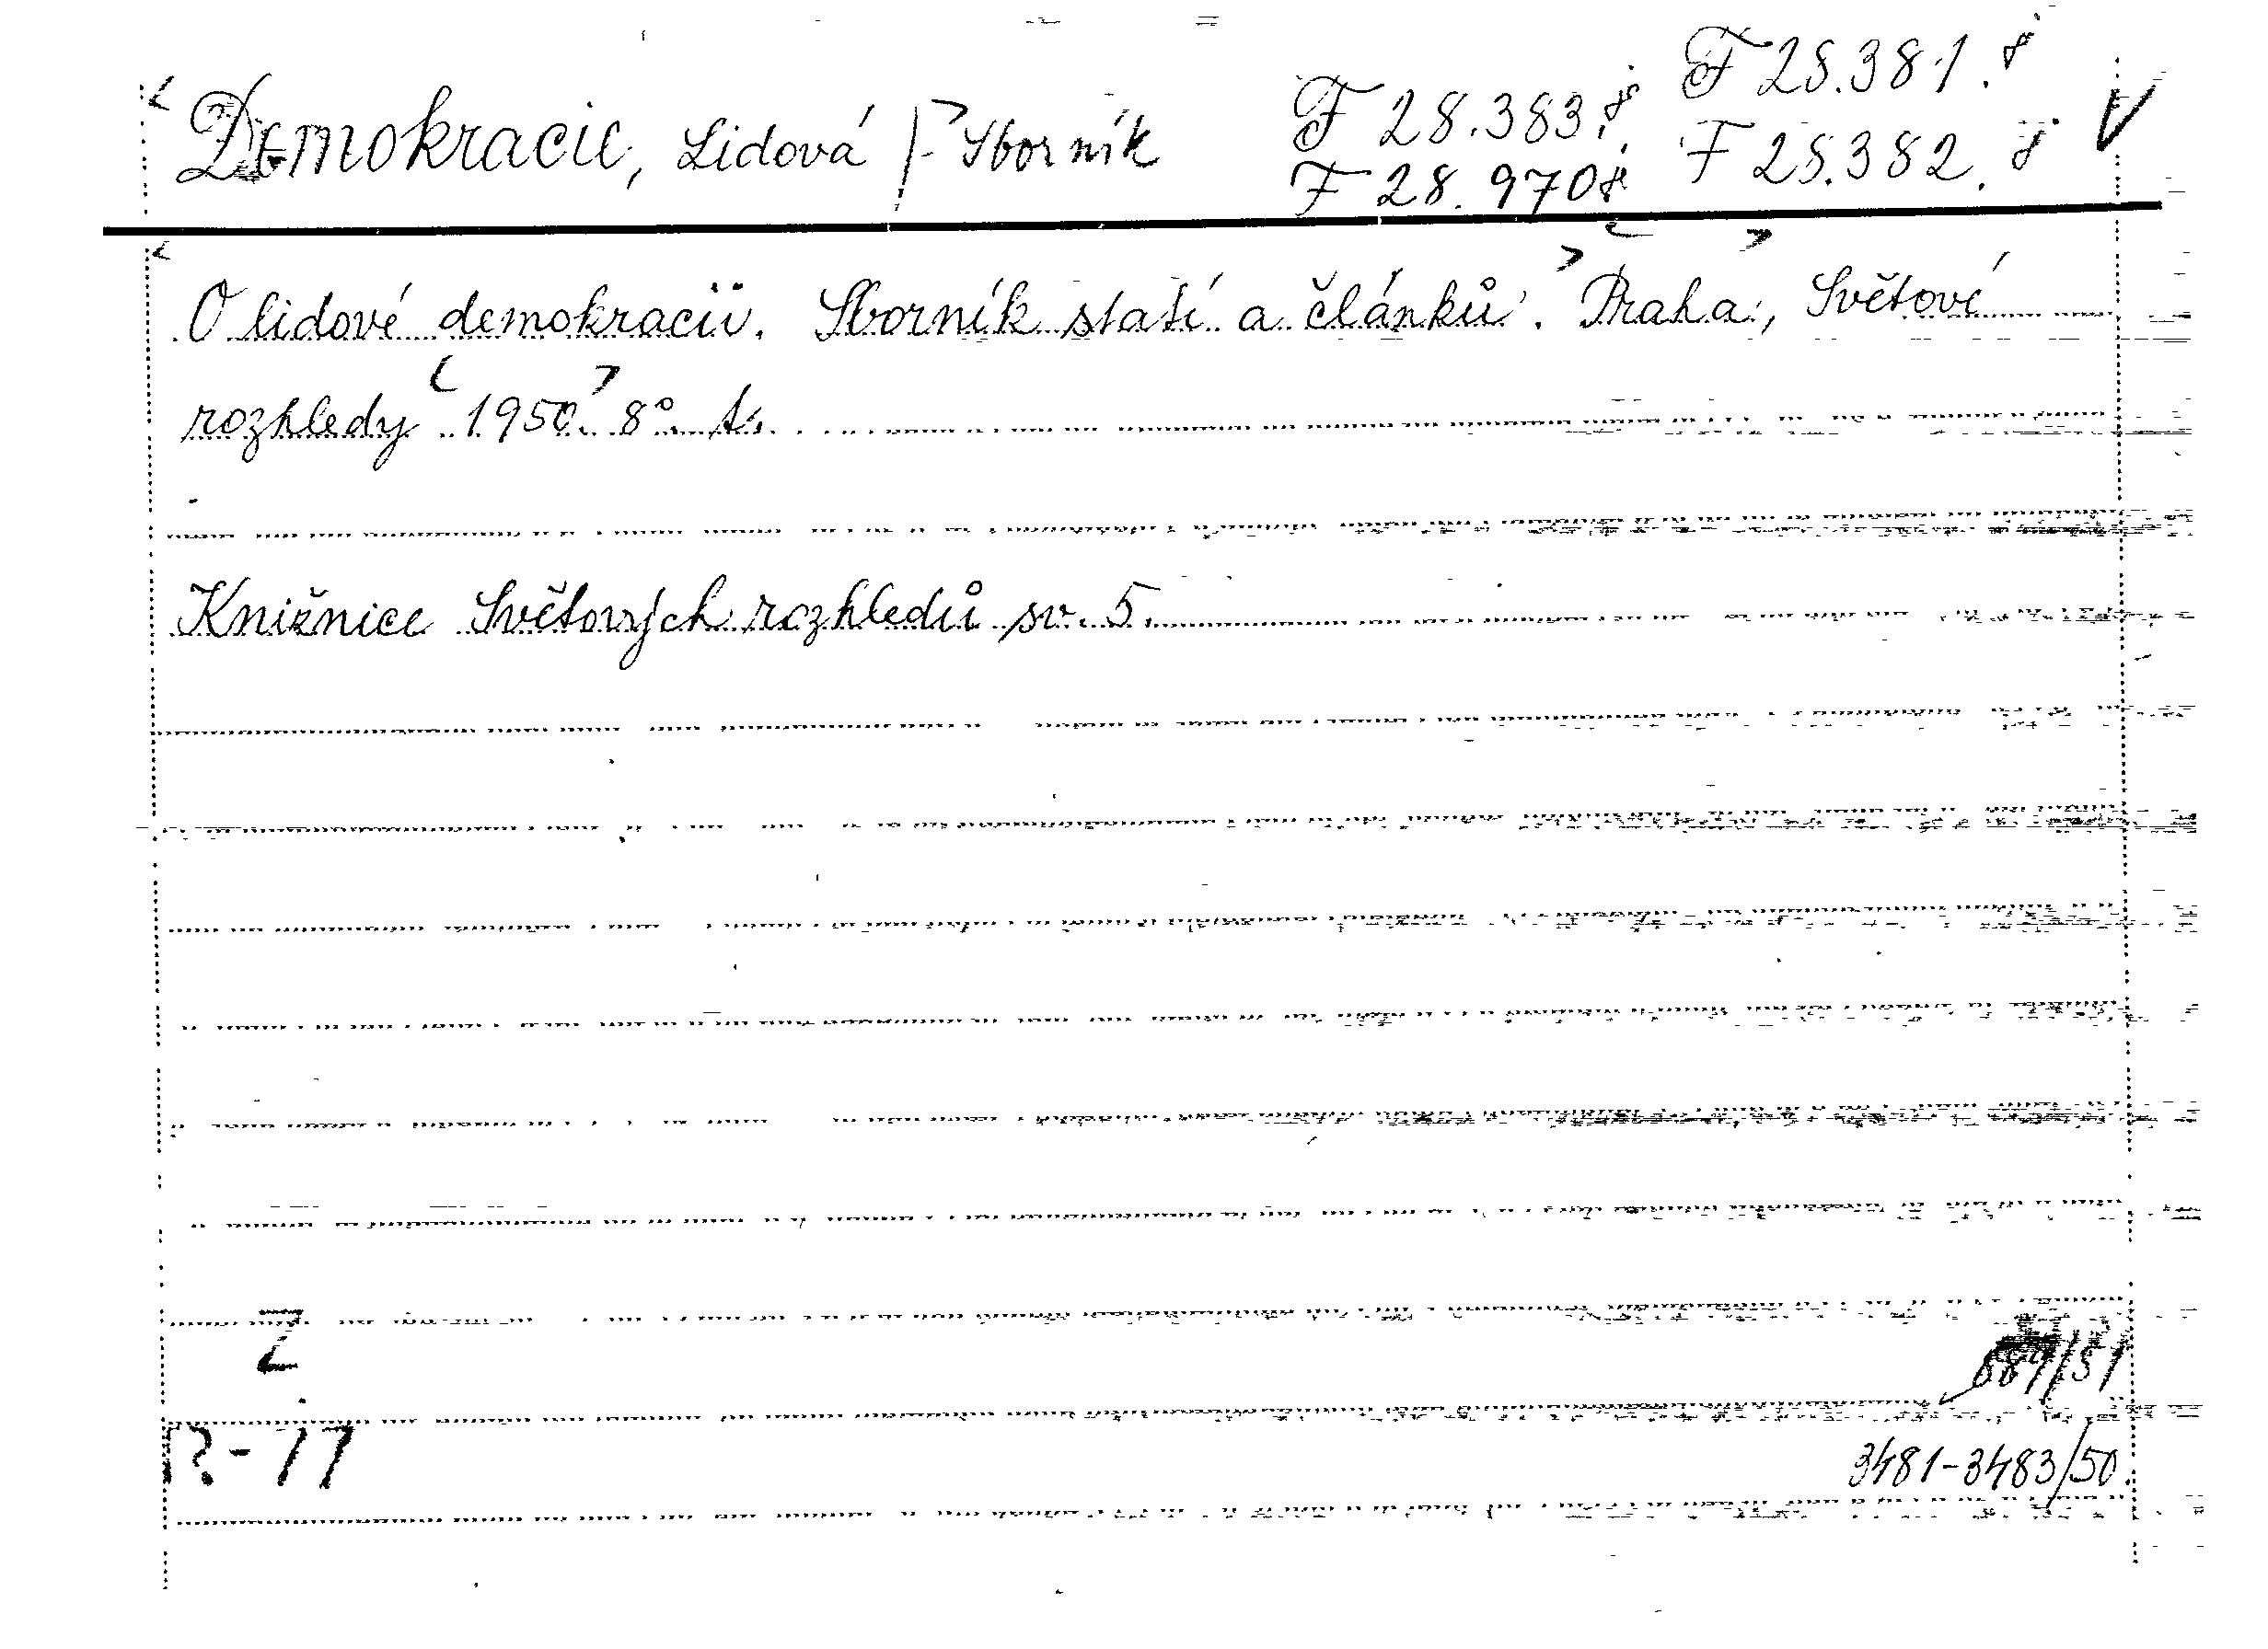 Demokracie, Lidová - Sborník
F 28.383.
F 28.381.
F 28.970
F 28.382.
O lidové demokracii. Sborník statí a článků. Praha, Světové
rozhledy 1950. 8°.
Knižnice Světových rozhledů sv. 5.
Z
R-11
/51
3481-3483/50